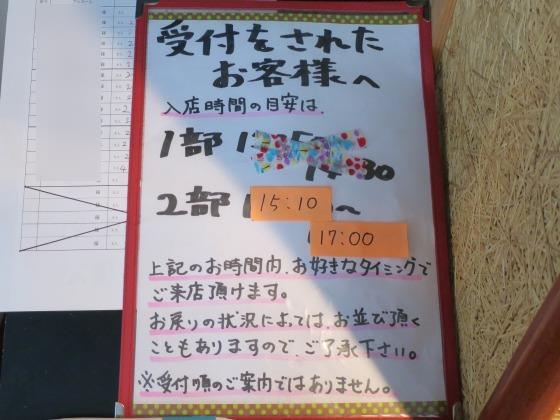 受付をされた
お客様へ
入店時間の目安は、
1部 1
14:30
2部 1 15:10 〜
17:00
上記のお時間内、お好きなタイミングで
ご来店頂けます。
お戻りの状況によっては、お並び頂く
こともありますので、ご了承下さい。
※受付順のご案内ではありません。